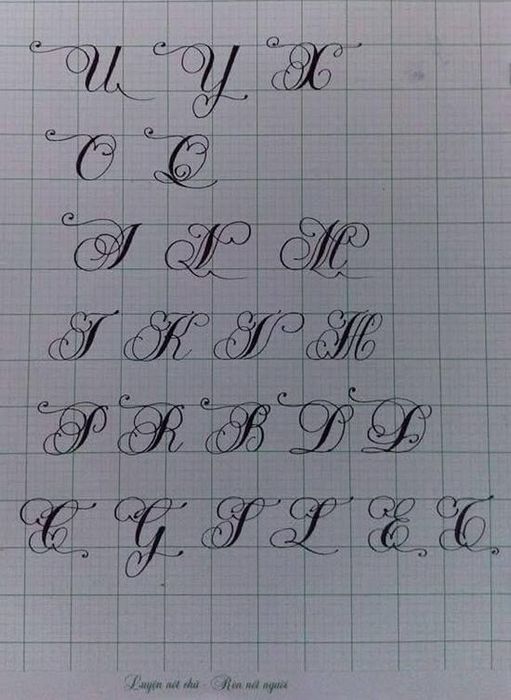 U Y X
O Q
A N M
I K V H
P R B D Đ
C G S L E T
Luyện nét chữ - Rèn nét người